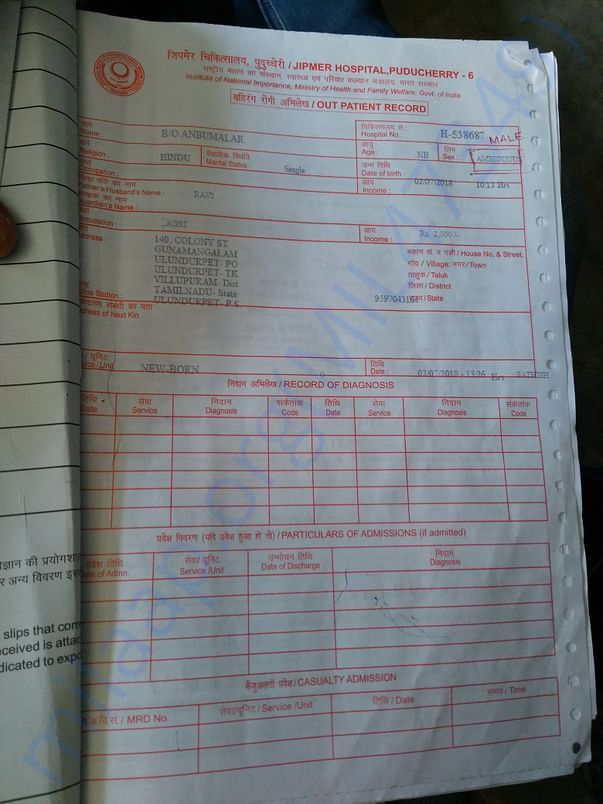 जिपमेर चिकित्सालय, पुदुच्चेरी / JIPMER HOSPITAL, PUDUCHERRY - 6
राष्ट्रीय महत्व का संस्थान, स्वास्थ्य एवं परिवार कल्याण मंत्रालय, भारत सरकार
Institute of National Importance, Ministry of Health and Family Welfare, Govt. of India
बहिरंग रोगी अभिलेख / OUT PATIENT RECORD
Name B/O ANBUMALAR चिकित्सालय सं.: Hospital No.: H-538687
MALE
Religion : HINDU वैवाहिक स्थिति Marital Status : Single आयु Age : NB लिंग Sex : AMBIGUOUS
Occupation : जन्म तिथि Date of birth :
Father's/Husband's Name : RAVI आय Income : 02/07/2018 10:13 Hrs
Guardian's Name :
Occupation : .AGRI आय Income : Rs 2,000/-
Address : 140, COLONY ST मकान सं. व गली / House No. & Street,
GUNAMANGALAM गाँव / Village: नगर/Town
ULUNDURPET- PO तालुक / Taluk
ULUNDURPET- TK जिला / District
VILLUPURAM- Dist
TAMILNADU- State /State
Station : ULUNDURPET- P.S 9597043164
Address of Next Kin
यूनिट Service/Unit NEW-BORN तिथि Date : 02/07/2018 - 13:26 Hrs SATHISH
निदान अभिलेख / RECORD OF DIAGNOSIS
तिथि Date सेवा Service निदान Diagnosis संकेतांक Code तिथि Date सेवा Service निदान Diagnosis संकेतांक Code
प्रवेश विवरण (यदि प्रवेश हुआ हो तो) / PARTICULARS OF ADMISSIONS (if admitted)
प्रवेश तिथि Date of Admn. सेवा/ यूनिट Service /Unit उन्मोचन तिथि Date of Discharge निदान Diagnosis
कैजुअलटी प्रवेश / CASUALTY ADMISSION
/ MRD No. सेवा/यूनिट / Service /Unit तिथि / Date समय / Time
अन्य विवरण
slips that com
ceived is attac
dicated to expo
milaap.org